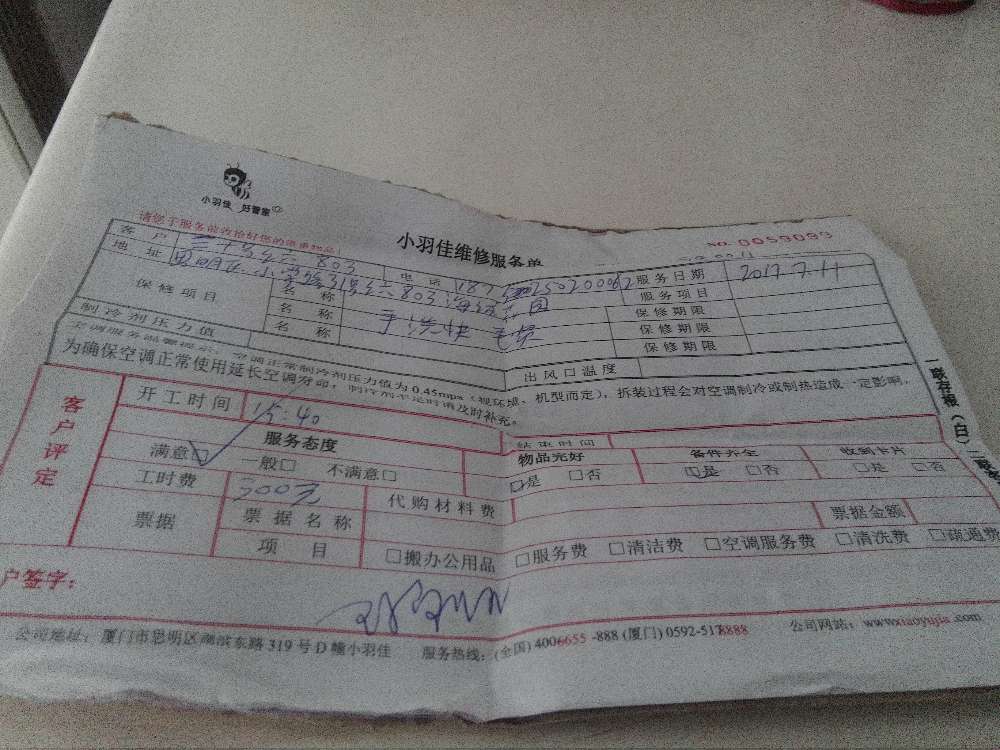 小羽佳 好管家
请您于服务前收拾好您的贵重物品!
小羽佳维修服务单
NO. 0059093
客户 803 电话 服务日期 2017.7.11
地址 803 服务项目
保修项目 名称 保修期限
名称 保修期限
名称 保修期限
制冷剂压力值 出风口温度
空调服务温馨提示:空调正常制冷剂压力值为0.45mpa(视环境、机型而定),拆装过程会对空调制冷或制热造成一定影响,
为确保空调正常使用延长空调寿命,制冷剂不足时请及时补充。
一联存根(白)
客户评定
开工时间 15:40 结束时间
服务态度 物品完好 备件齐全 收到卡片
满意□ 一般□ 不满意□ □是 □否 □是 □否 □是 □否
工时费 300元 代购材料费
票据 票据名称 票据金额
项目 □搬办公用品 □服务费 □清洁费 □空调服务费 □清洗费 □疏通费
户签字:
公司地址: 厦门市思明区湖滨东路319号D幢小羽佳 服务热线:(全国) 4006655-888 (厦门) 0592-5178888 公司网站: www.xiaoyujia.com